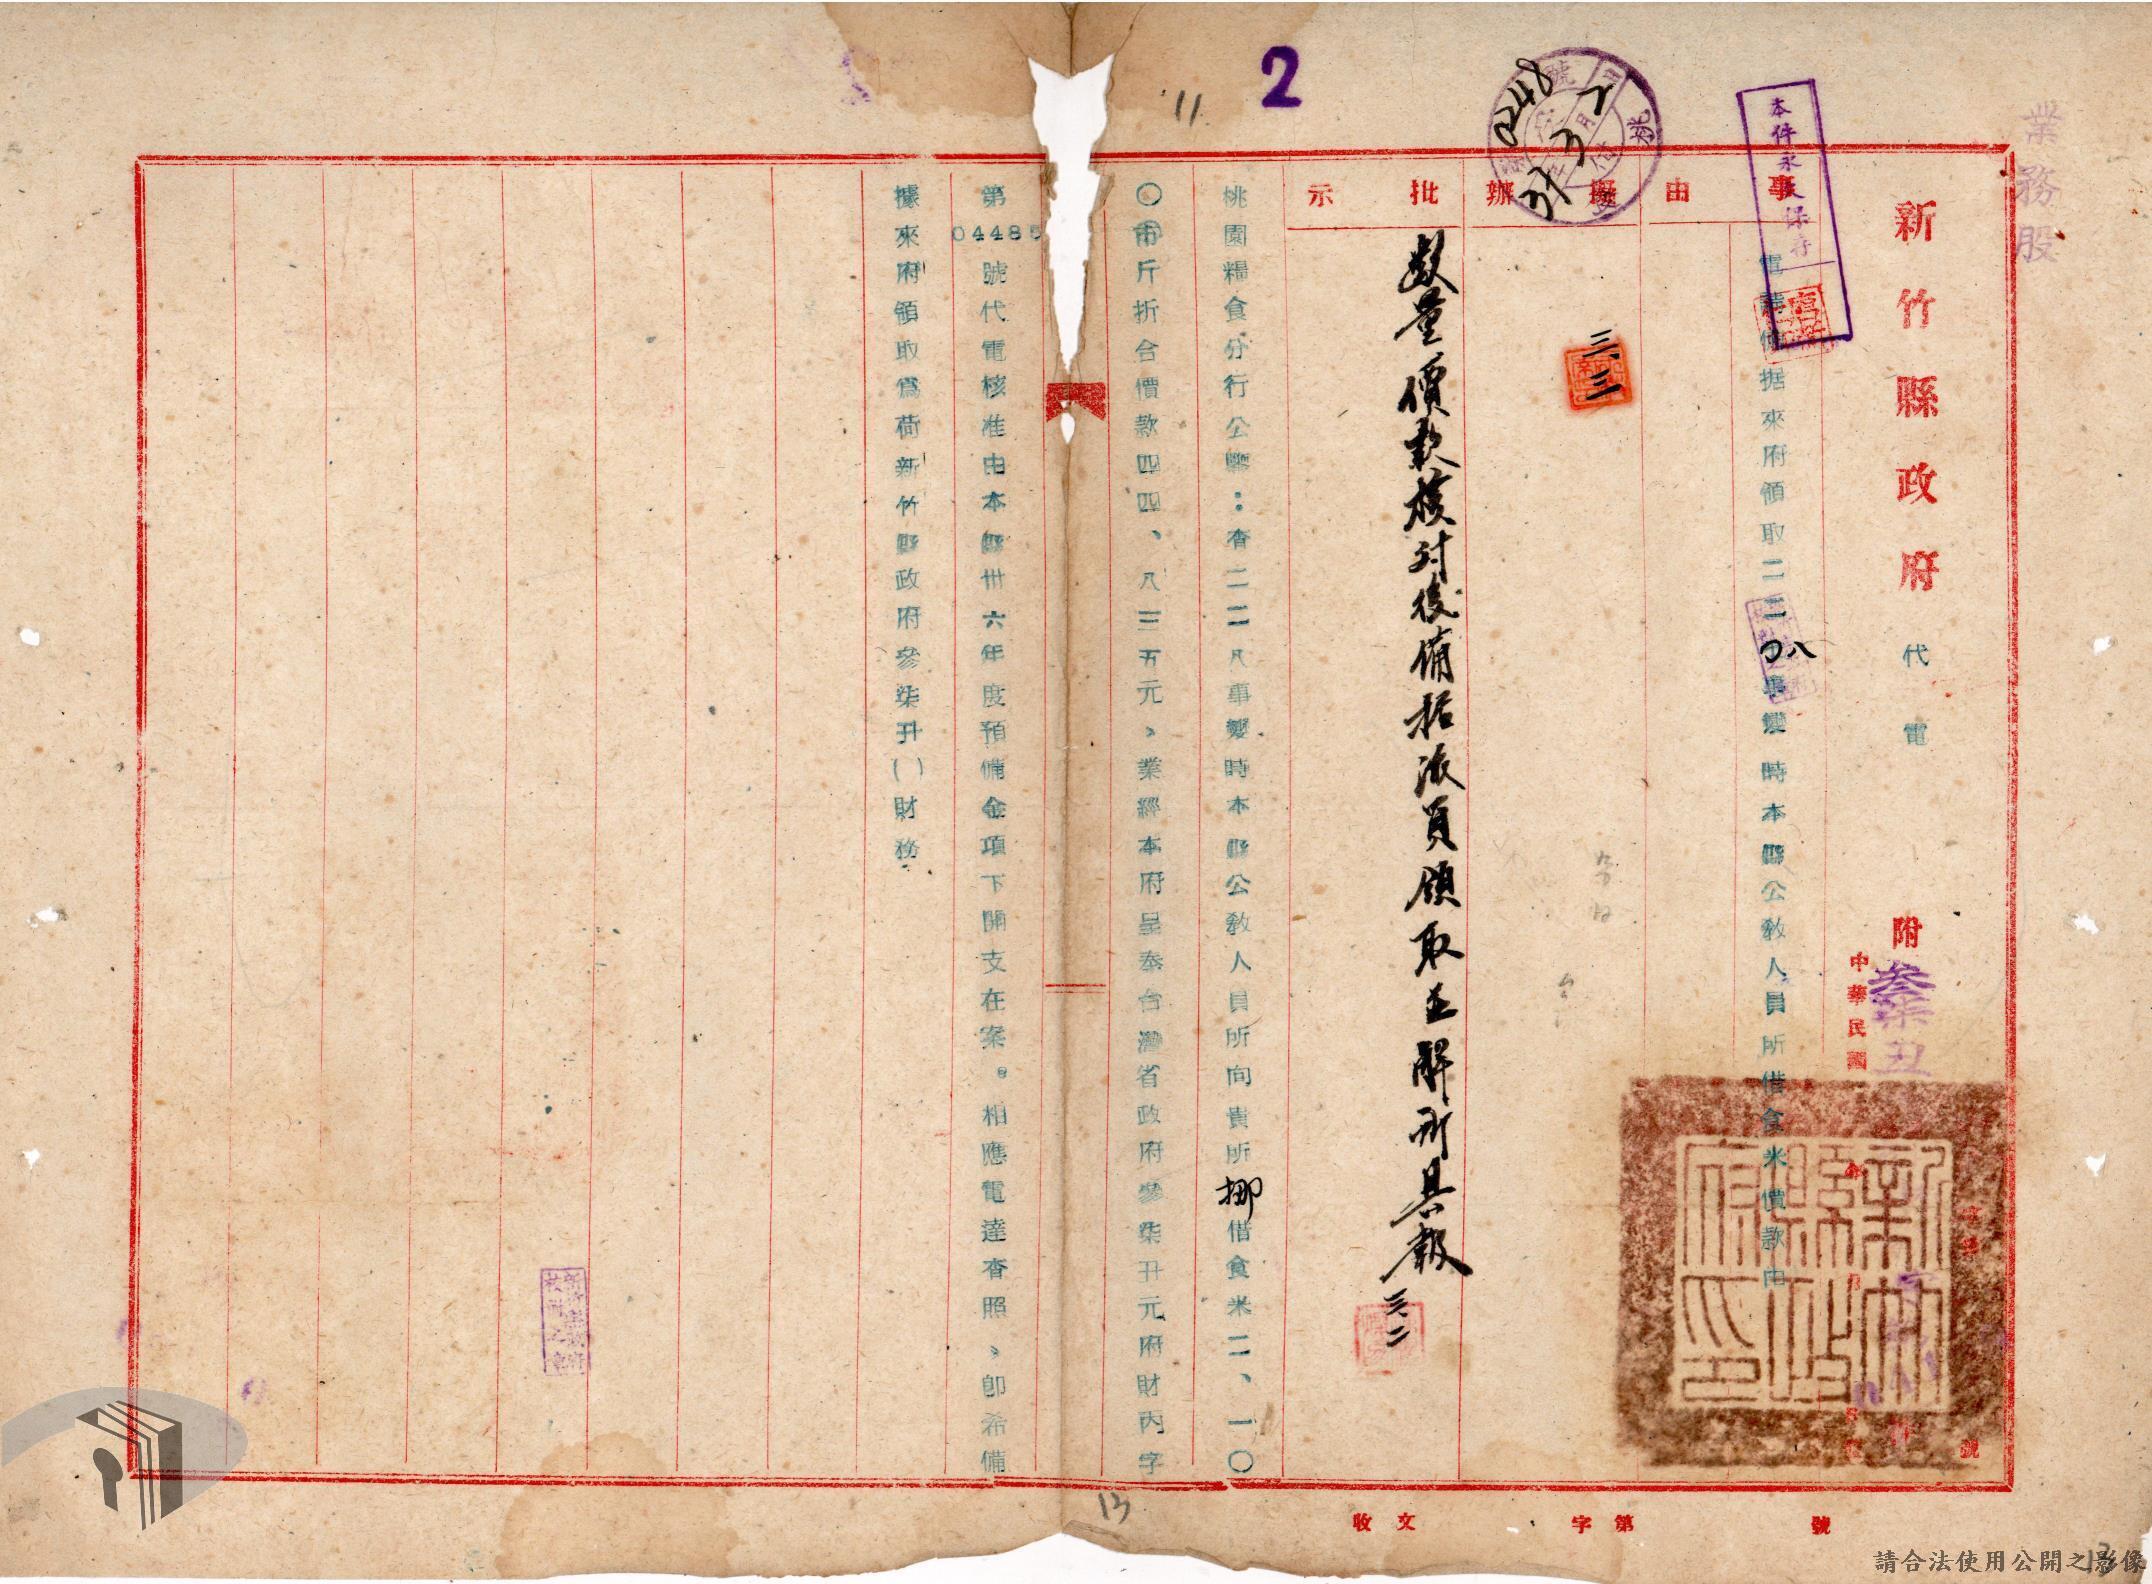 業務股
新竹縣政府 代電
附
叁柒丑
中華民國
號
本件永久保存
事由
電請備据來府領取二二八事變時本縣公教人員所借食米價款由
擬辦
三、三
批示
數量價款核対後備据派員領取並解所具報 三、二
桃園糧食分行公鑒：查二二八事變時本縣公教人員所向貴所挪借食米二、一〇
〇市斤折合價款四四、八三五元、業經本府呈奉台灣省政府參柒丑元府財丙字
第04485號代電核准由本縣卅六年度預備金項下開支在案。相應電達查照、卽希備
據來府領取爲荷新竹縣政府參柒丑（）財務
收文 字第 號
2
11
0248
37 3 2
13
13
新竹縣政府印
請合法使用公開之影像